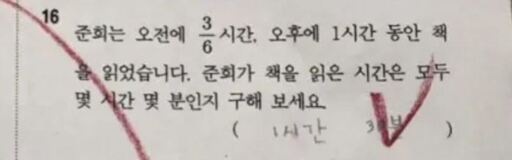 16
준희는 오전에 3/6 시간, 오후에 1시간 동안 책
을 읽었습니다. 준희가 책을 읽은 시간은 모두
몇 시간 몇 분인지 구해 보세요.
( 1시간 30분 )